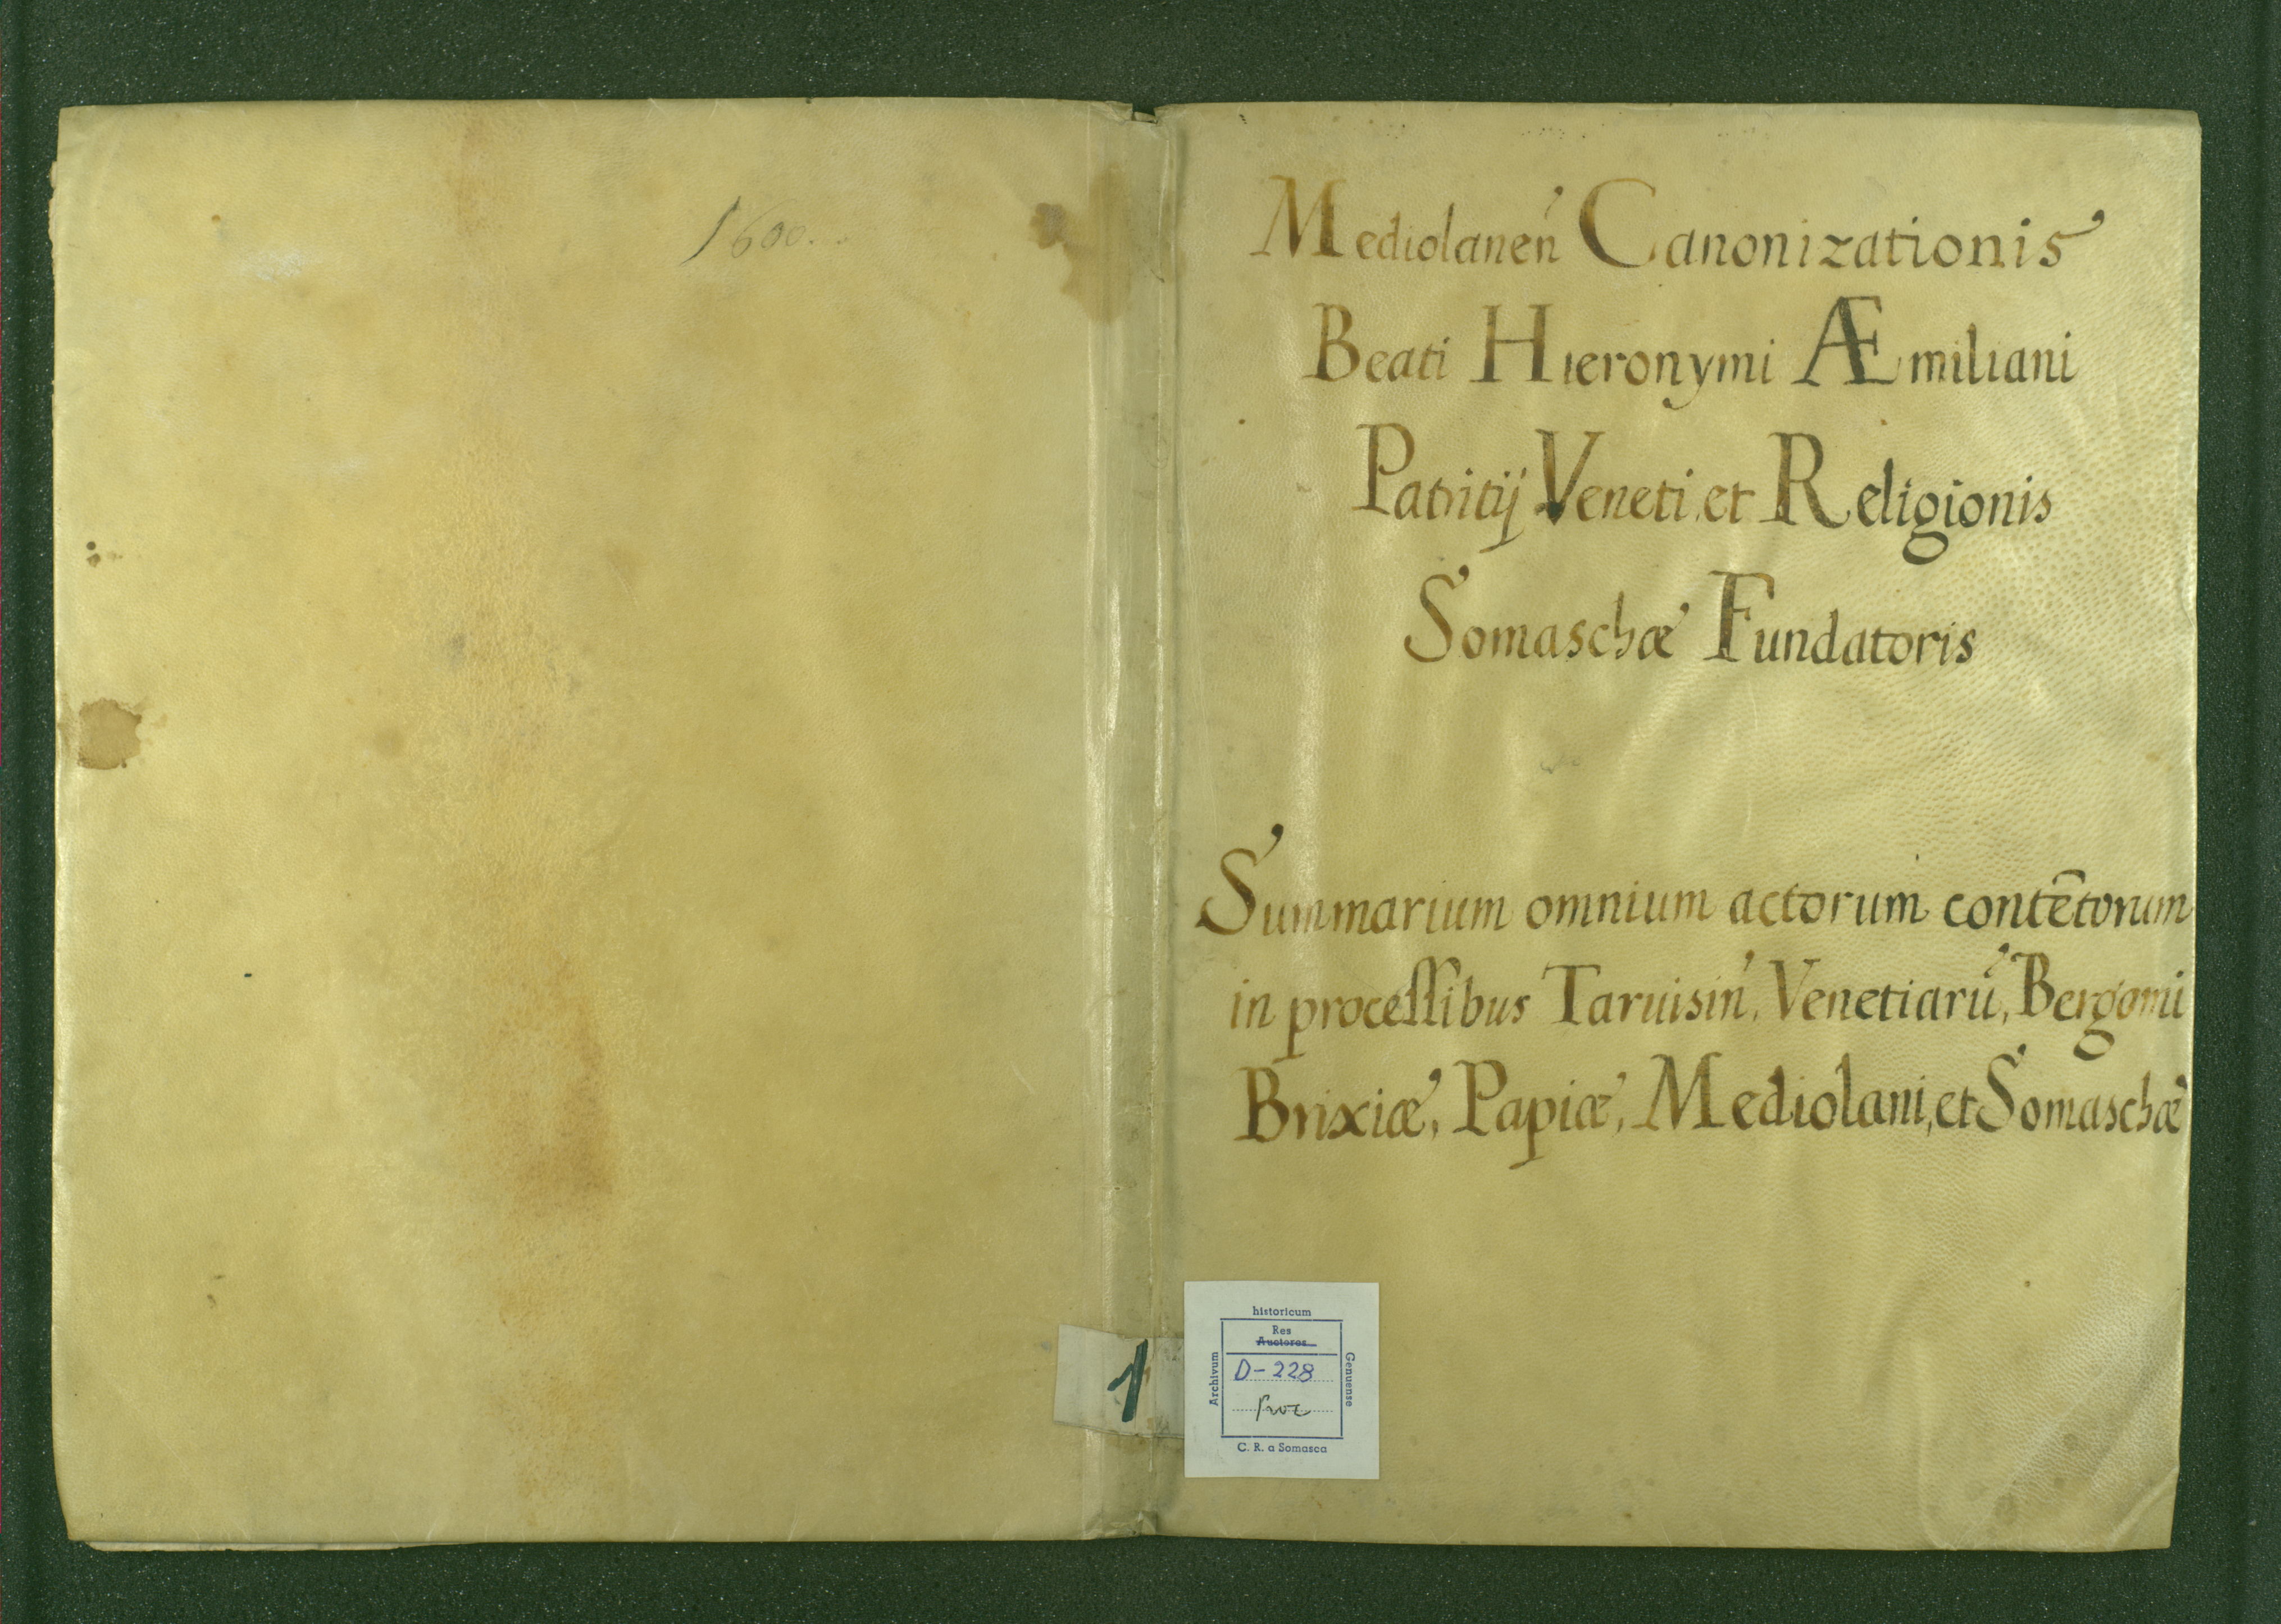 1600.
Mediolanen̕ Canonizationis
Beati Hieronymi Æmiliani
Patritij Veneti et Religionis
Somaschæ Fundatoris
Summarium omnium actorum contētorum
in processibus Taruisin̕, Venetiarū, Bergomi
Brixiæ, Papiæ, Mediolani, et Somaschæ
1
historicum
Res
Auctores
Archivum
D-228
Genuense
Proc
C. R. a Somasca